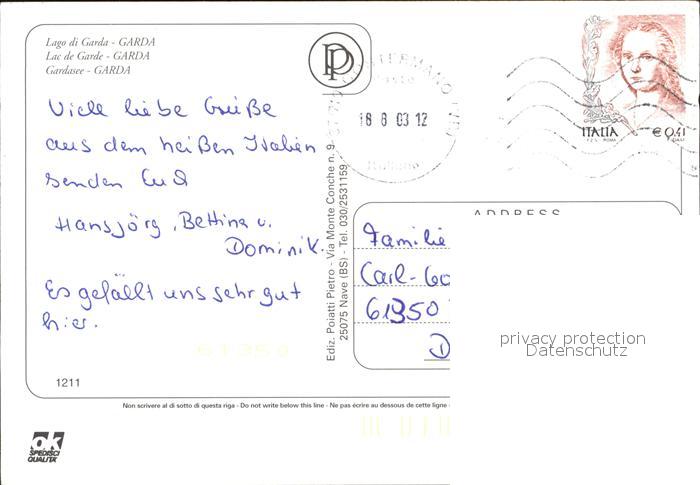 Lago di Garda - GARDA
Lac de Garde - GARDA
Gardasee - GARDA
Viele liebe Grüße
aus dem heißen Italien
senden Euch
Hansjörg, Bettina u.
Dominik.
Es gefällt uns sehr gut
hier.
1211
ok
SPEDISCI
QUALITÀ
Ediz. Poiatti Pietro - Via Monte Conche n. 9
25075 Nave (BS) - Tel. 030/2531159
PP
18 8 03 12
ITALIA
€ 0,41
ADDRESS
Familie
Carl-Go
61350
D
privacy protection
Datenschutz
Non scrivere al di sotto di questa riga - Do not write below this line - Ne pas écrire au dessous de cette ligne
61350